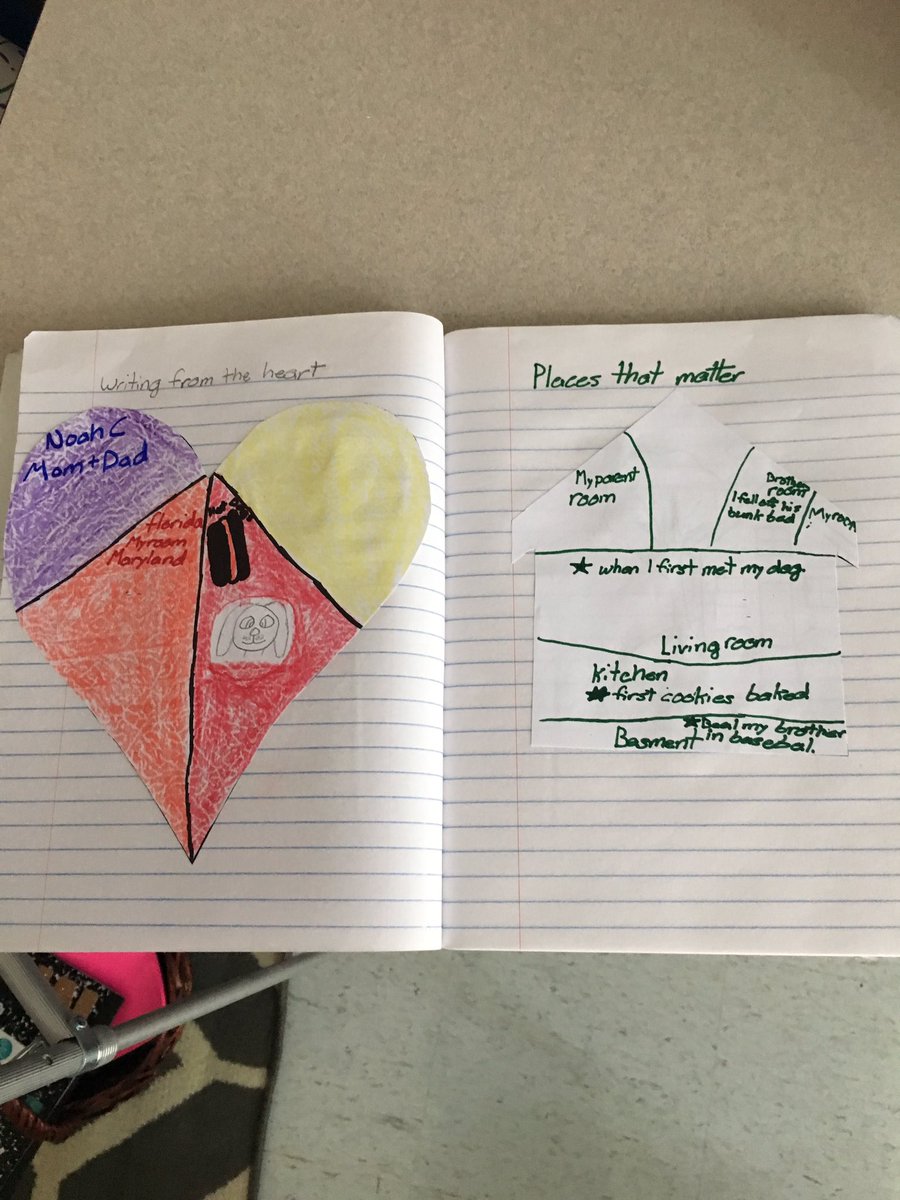 Writing from the heart
Noah C
Mom + Dad
Florida
My room
Maryland
Places that matter
My parent
room
Brother
room
I fell off his
bunk bad
My room
★ when I first met my dog
Living room
Kitchen
★ first cookies baked
★ Beat my brother
in basebal.
Basment